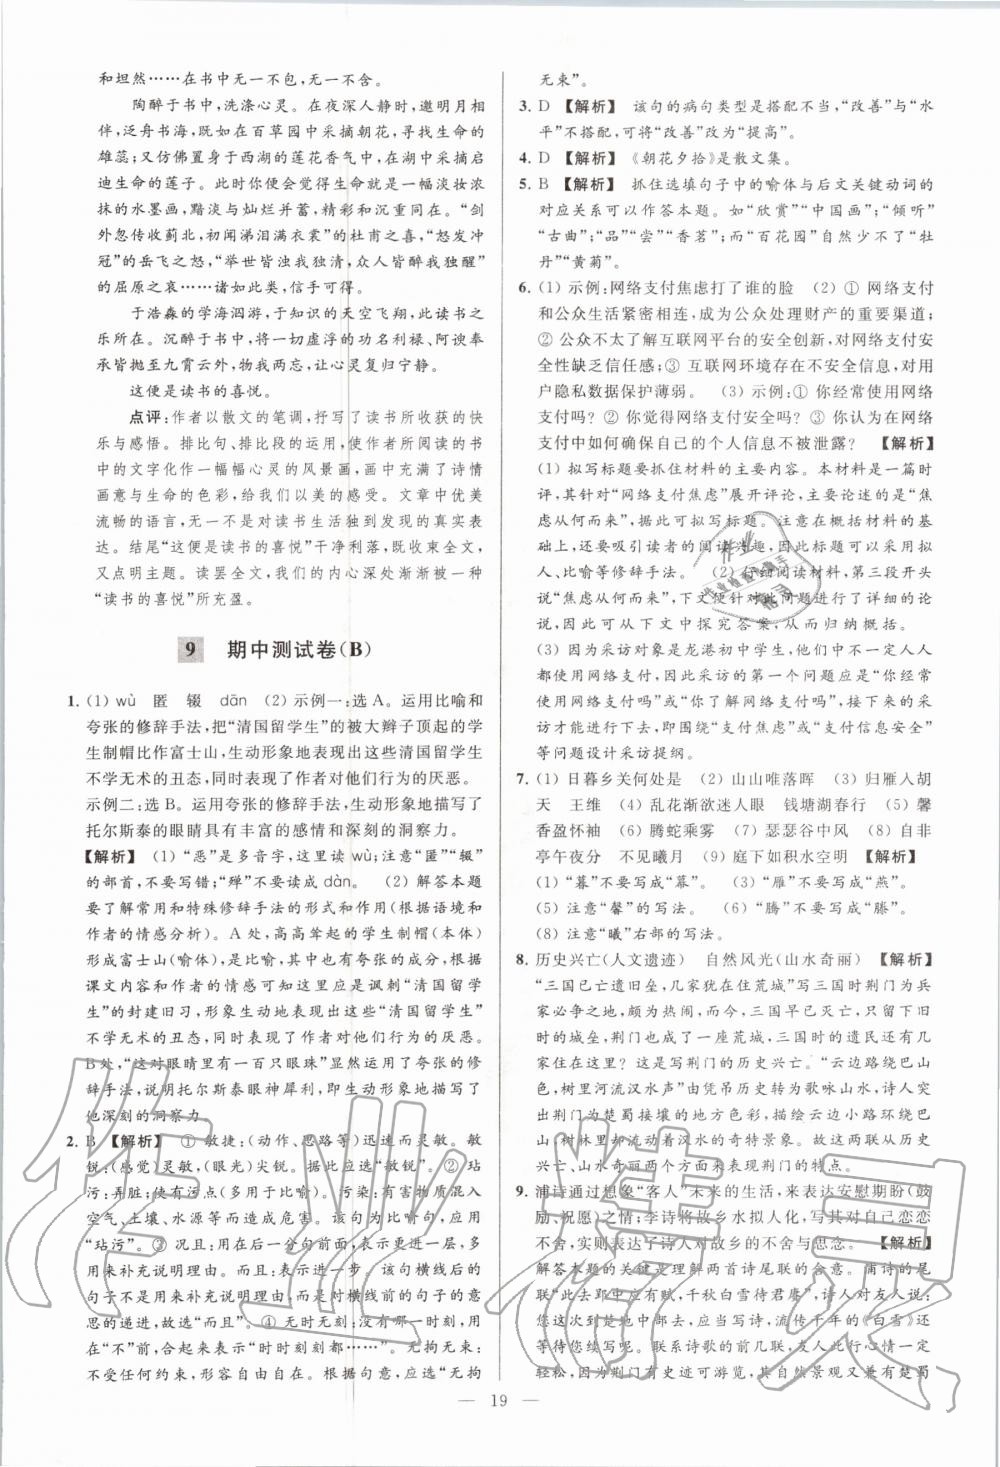 和坦然……在书中无一不包,无一不含。
陶醉于书中,洗涤心灵。在夜深人静时,邀明月相
伴,泛舟书海,既如在百草园中采摘朝花,寻找生命的
雄蕊;又仿佛置身于西湖的莲花香气中,在湖中采摘启
迪生命的莲子。此时你便会觉得生命是一幅淡妆浓
抹的水墨画,黯淡与灿烂并蓄,精彩和沉重同在。“剑
外忽传收蓟北,初闻涕泪满衣裳”的杜甫之喜,“怒发冲
冠”的岳飞之怒,“举世皆浊我独清,众人皆醉我独醒”
的屈原之哀……诸如此类,信手可得。
于浩淼的学海洄游,于知识的天空飞翔,此读书之
乐所在。沉醉于书中,将一切虚浮的功名利禄、阿谀奉
承皆抛至九霄云外,物我两忘,让心灵复归宁静。
这便是读书的喜悦。
点评:作者以散文的笔调,抒写了读书所收获的快
乐与感悟。排比句、排比段的运用,使作者所阅读的书
中的文字化作一幅幅心灵的风景画,画中充满了诗情
画意与生命的色彩,给我们以美的感受。文章中优美
流畅的语言,无一不是对读书生活独到发现的真实表
达。结尾“这便是读书的喜悦”干净利落,既收束全文,
又点明主题。读罢全文,我们的内心深处渐渐被一种
“读书的喜悦”所充盈。
9 期中测试卷(B)
1. (1) wù 匿 辍 dān (2) 示例一:选A。运用比喻和
夸张的修辞手法,把“清国留学生”的被大辫子顶起的学
生制帽比作富士山,生动形象地表现出这些清国留学生
不学无术的丑态,同时表现了作者对他们行为的厌恶。
示例二:选B。运用夸张的修辞手法,生动形象地描写了
托尔斯泰的眼睛具有丰富的感情和深刻的洞察力。
【解析】 (1) “恶”是多音字,这里读wù;注意“匿”“辍”
的部首,不要写错;“殚”不要读成dàn。 (2) 解答本题
要了解常用和特殊修辞手法的形式和作用(根据语境和
作者的情感分析)。A处,高高耸起的学生制帽(本体)
形成富士山(喻体),是比喻,其中也有夸张的成分。根据
课文内容和作者的情感可知这里讽刺了“清国留学生”
的封建旧习,形象生动地表现出这些“清国留学生”
不学无术的丑态,同时表现了作者对其行为的厌恶。
B处,“这对眼睛里有一百只眼珠”显然运用了夸张的修
辞手法,说明托尔斯泰眼神犀利,即生动形象地描写了
他深刻的洞察力。
2. B 【解析】 ① 敏捷:(动作、思路等)迅速而灵敏。敏
锐:(感觉)灵敏,(眼光)尖锐。据此应选“敏锐”。② 玷
污:弄脏;使有污点(多用于比喻)。污染:有害物质混入
空气、土壤、水源等而造成危害。该句为比喻句,应用
“玷污”。③ 况且:用在后一分句前面,表示更进一层,用
来补充说明理由。而且:表示进一步 该句横线后的
句子不是用来补充说明理由,而是表示前面的句子的意
思的递进,故选“而且”。④ 无时无刻:常用在“不”前,用
在“不”前,合起来表示“时时刻刻都……”。无拘无束:
不受任何约束,形容自由自在。根据句意,应为“无拘
无束”。
3. D 【解析】 该句的病句类型是搭配不当,“改善”与“水
平”不搭配,可将“改善”改为“提高”。
4. D 【解析】 《朝花夕拾》是散文集。
5. B 【解析】 抓住选填句子中的喻体与后文关键动词的
对应关系可以作答本题。如“欣赏”“中国画”;“倾听”
“古曲”;“品”“尝”“香茗”;而“百花园”自然少不了“牡
丹”“黄菊”。
6. (1) 示例:网络支付焦虑打了谁的脸 (2) ① 网络支付
和公众生活息息相关,成为公众处理财产的重要渠道;
② 公众不太了解互联网平台的安全创新,对网络支付安
全性缺乏信任感;③ 互联网环境存在不安全信息,对用
户隐私数据保护薄弱。 (3) 示例:① 你经常使用网络
支付吗? ② 你觉得网络支付安全吗? ③ 你认为在网络
支付中如何确保自己的个人信息不被泄露? 【解析】
(1) 拟写标题要抓住材料的主要内容。本材料是一篇时
评,其针对“网络支付焦虑”展开评论,主要评述的是“焦
虑从何而来”,据此可拟写标题。注意在概括材料的基
础上,还要吸引读者的阅读兴趣,因此标题可以采用拟
人、比喻等修辞手法。 (2) 仔细阅读材料,第三段开头
说“焦虑从何而来”,下文便针对此问题进行了详细的论
说,故可以从下文中探究答案,从而概括原因。
(3) 因为采访对象是龙港初中学生,他们中不一定人人
都使用网络支付,所以采访的第一个问题应是“你使用
网络支付吗”或“你了解网络支付吗”,其后根据具体的采
访才能进行下去,即围绕“支付焦虑”或“支付信息安全”
等问题设计采访提纲。
7. (1) 日暮乡关何处是 (2) 山山唯落晖 (3) 归雁入胡
天 王维 (4) 乱花渐欲迷人眼 钱塘湖春行 (5) 馨
香盈怀袖 (6) 腾蛇乘雾 (7) 瑟瑟谷中风 (8) 自非
亭午夜分 不见曦月 (9) 庭下如积水空明 【解析】
(1) “暮”不要写成“幕”。 (3) “雁”不要写成“燕”。
(5) 注意“馨”的写法。 (6) “腾”不要写成“滕”。
(8) 注意“曦”右部的写法。
8. 历史兴亡(人文遗迹) 自然风光(山水奇丽) 【解析】
“三国已亡遗旧垒,几家犹在住荒城”描写荆门为兵
家必争之地,纷争频频,然而而今,三国早已灭亡,曾经
的城垒,荆门也成了一座荒城,三国时的遗民还有几
家住在这里? 这是写荆门的历史兴亡。“云边路绕巴山
色,树里河流汉水声”由凭吊历史转为歌咏山水,诗人突
出荆门为楚蜀接壤的地方色彩,描绘云边小路环绕巴
山,树林里却流动着汉水的奇特景象。故这两联从历史
兴亡、山水奇丽两个方面表现了荆门的特点。
9. 浦诗通过想象“客人”未来的生活,来表达安慰期盼(鼓
励、祝愿)之情;李诗将故乡水拟人化,写其对自己恋恋
不舍,实则表达了诗人对故乡的不舍与思念。 【解析】
解答本题的关键是理解两首诗尾联的含意。浦诗的尾
联“此去郢中应有赋,千秋白雪待君赓”,诗人对友人说:
您这次到楚地中部去,应当写诗,流传千年的《白雪》还
等待您续写呢。联系诗歌的前几联,作者心情一定不
轻松,因为荆门有史迹可游览,其自然景观又可赏
— 19 —